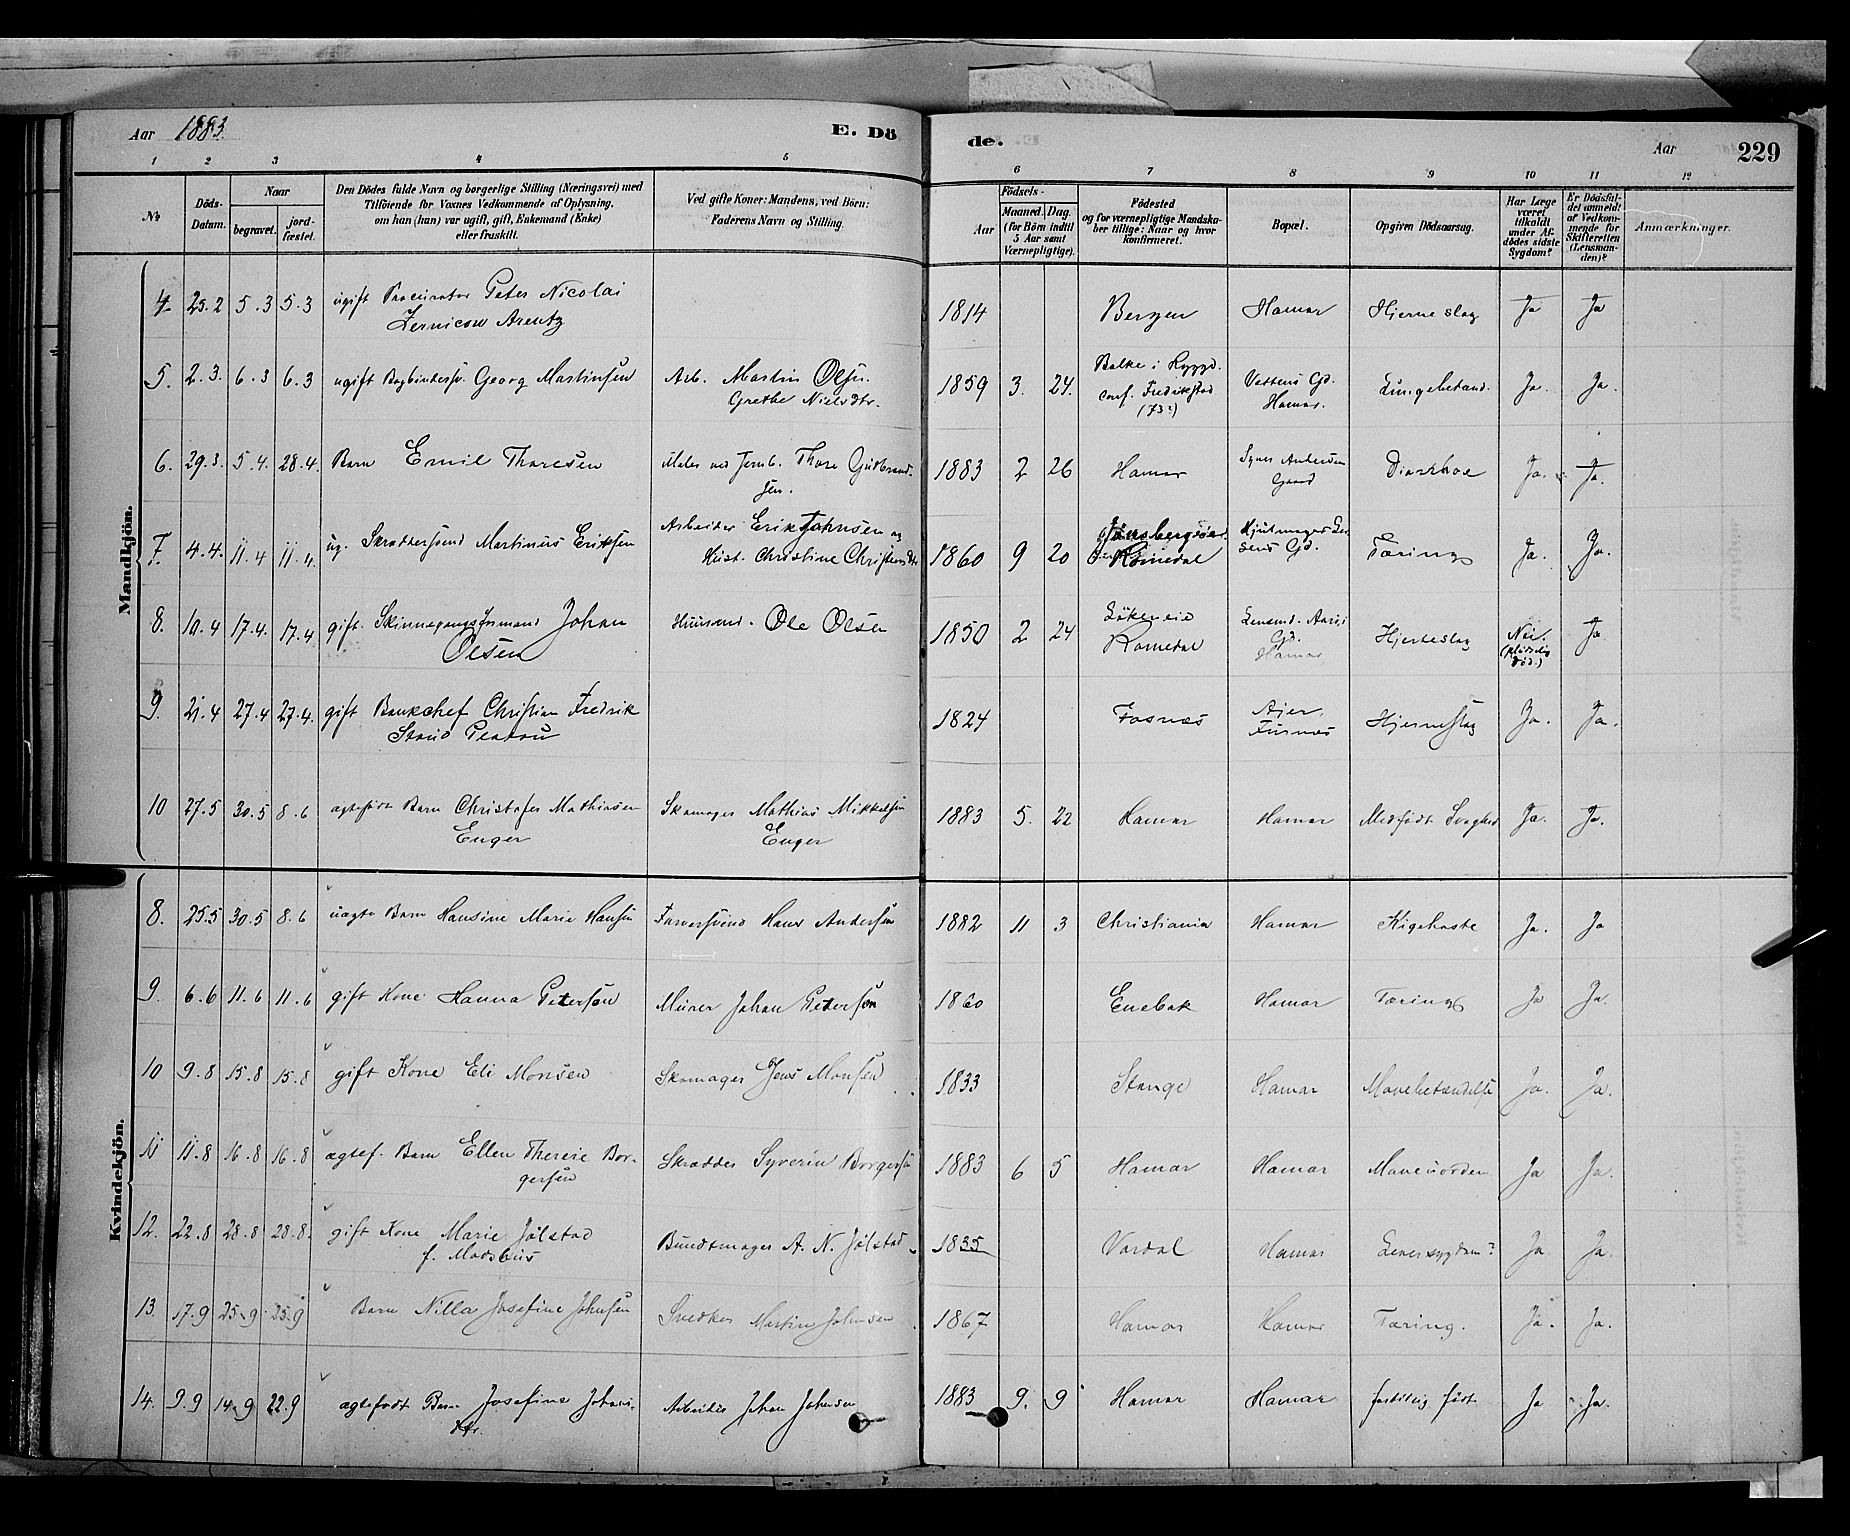 Aar 1883. E. Dö de. Aar 229
1 2 3 4 5 6 7 8 9 10 11 12
No Döds-Datum. Naar begravet. jord-fæstet. Den Dödes fulde Navn og borgerlige Stilling (Næringsvei) med Tilföiende for Voxnes Vedkommende af Oplysning, om han (hun) var ugift, gift, Enkemand (Enke) eller fraskilt. Ved gifte Koner: Mandens, ved Börn: Faderens Navn og Stilling. Födsels- Aar Maaned. Dag. (for Börn indtil 5 Aar samt Værnepligtige). Födested og for værnepligtige Mandska-ber tillige: Naar og hvor konfirmeret. Bopæl. Opgiven Dödsaarsag. Har Læge været tilkaldt under Af-dödes sidste Sygdom? Er Dödsfal-det anmeldt af Vedkom-mende for Skifteretten (Lensman-den)? Anmærkninger.
Mandkjön.
4 25.2 5.3 5.3 ugift Procurator Peter Nicolai 1814 Bergen Hamar Hjerneslag Ja Ja
Zernicow Arentz
5. 2.3. 6.3 6.3 ugift Bogbindersv. Georg Martinsen Arb. Martin Olsen 1859 3. 24. Balke i Rygge. Vettens Gd. Lungebetænd. Ja. Ja.
Grethe Nielsdtr. conf. Fredrikstad Hamar.
(73?)
6. 29.3. 5.4. 28.4. Barn Emil Thoresen Maler ved Jernb. Thore Gudbrand- 1883 2 26 Hamar Andersen Diarrhoe Ja. Ja.
sen. Gaard
7. 4.4. 11.4 11.4. ug. Skræddersvend Martinus Eriksen Arbeider Erik Johnsen og 1860 9 20 Hjulmager Tæring Ja. Ja.
Hust. Christine Christensdtr Romedal sens Gd.
8. 10.4 17.4. 17.4 gift. Skinnegangsformand Johan Husmd. Ole Olsen 1850 2 24 Lökeneie Lensmd. Gd. Hjerteslag Nei. Ja
Olsen Romedal Hamar (pludselig död.)
9. 21.4 27.4 27.4. gift Bankchef Christian Fredrik 1824 Fosnæs Ajer, Hjerneslag Ja. Ja.
Stoud Platou Furnæs
10 27.5 30.5 8.6 ægtefödt Barn Christofer Mathiasen Skomager Mathias Mikkelsen 1883 5. 22 Hamar Hamar Medfödt Svaghed Ja. Ja.
Enger Enger
Kvindekjön.
8. 25.5 30.5 8.6 uægte Barn Hansine Marie Hansen Farversvend Hans Andersen 1882 11 3 Christiania Hamar Kighoste Ja. Ja
9. 6.6 11.6 11.6 gift Kone Hanna Petersen Murer Johan Petersen 1860 Enebak Hamar Tæring Ja Ja.
10 9.8 15.8 15.8 gift Kone Eli Monsen Skomager Jens Monsen 1833 Stange Hamar Mavebetændelse Ja. Ja.
11 11.8 16.8 16.8 ægtef. Barn Ellen Therese Bor- Skrædder Syverin Borgersen 1883 6 5 Hamar Hamar Maveuorden Ja Ja.
gersen
12. 22.8 28.8 28.8. gift Kone Marie Jölstad Bundtmager A. N. Jölstad 1835 Vardal Hamar Leversygdom? Ja Ja.
f. Madshus
13. 17.9 25.9 25.9 Barn Nilla Josefine Johnsen Snedker Martin Johnsen 1867 Hamar Hamar Tæring. Ja. Ja.
14. 9.9 14.9 22.9 ægtefödt Barn Josefine Johans- Arbeider Johan Johnsen 1883 9. 9 Hamar Hamar fortidlig födt Ja Ja.
dtr.